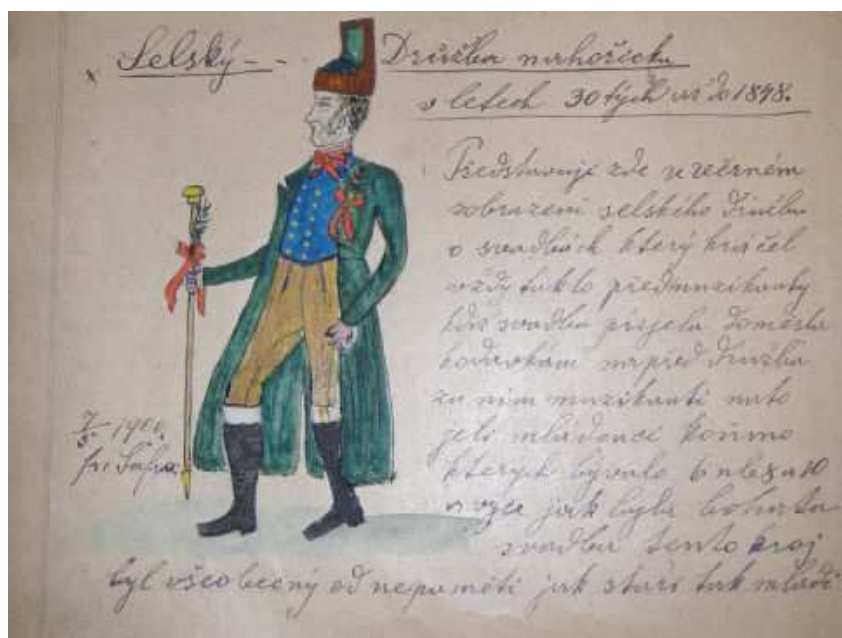 Selský - - Družba na hořicku
v letech 30 tých až do 1848.
Představuji zde ve věrném
zobrazení selského družbu
o svadbách který kráčel
vždy takto před muzikanty
když svadba přijela do města
kodavkám napřed družba
za ním muzikanti nato
jeli mládenci koňmo
kterých bývalo 6 neb 8 a 10
a více jak byla bohatá
svadba tento kroj
byl všeobecný od nepaměti jak staří tak mládí
7/5 1900.
fr. Šafra.